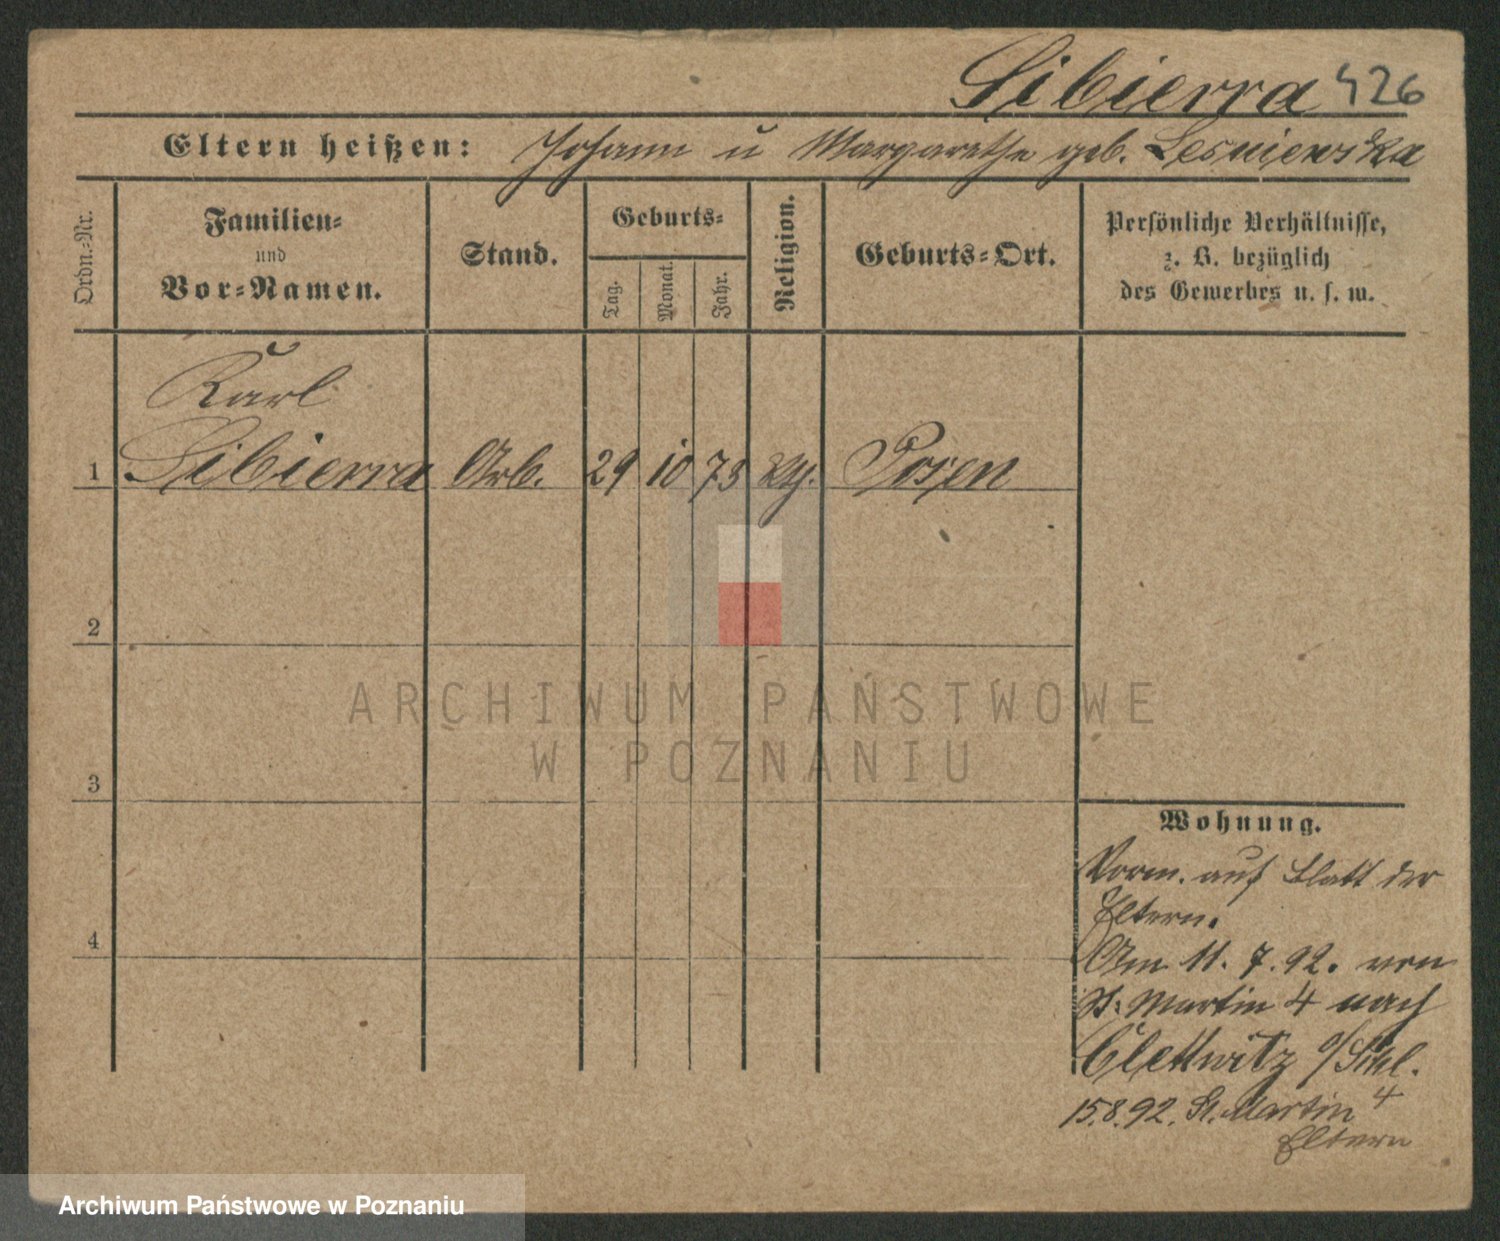 Sibierra 426
Eltern heißen: Johann u Margarethe geb. Lesniewska
Ordn.-Nr.
Familien-
und
Vor-Namen.
Stand.
Geburts-
Tag.
Monat.
Jahr.
Religion.
Geburts-Ort.
Persönliche Verhältnisse,
z. B. bezüglich
des Gewerbes u. s. w.
Karl
1 Sibierra Arb. 29 10 73 kth. Posen
2
3
4
Wohnung.
Vorm. auf Blatt der
Eltern.
Am 11. 7. 92. von
St. Martin 4 nach
o/Schl.
15.8.92. St. Martin 4
Eltern
ARCHIWUM PAŃSTWOWE
W POZNANIU
Archiwum Państwowe w Poznaniu